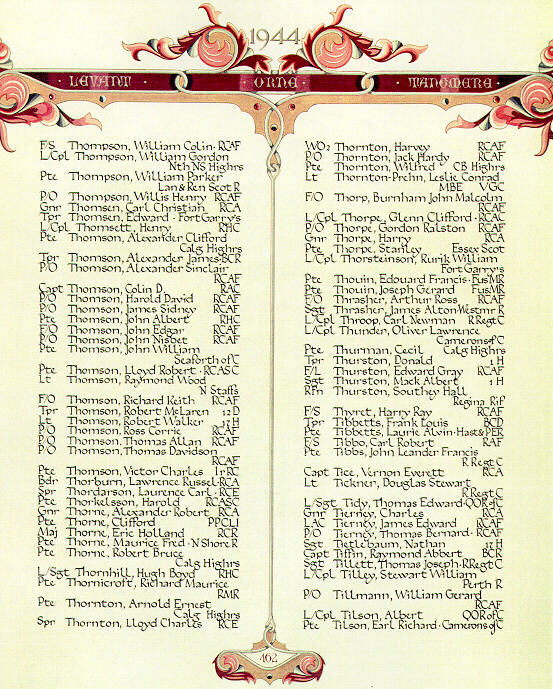 1944
LEVANT · ORNE · TANGMERE
F/S Thompson, William Colin · RCAF
L/Cpl Thompson, William Gordon
Nth NS Highrs
Pte Thompson, William Parker
Lan & Ren Scot R
P/O Thompson, Willis Henry RCAF
Gnr Thomsen, Carl Christian RCA
Tpr Thomsen, Edward · Fort Garry's
L/Cpl Thomsett, Henry RHC
Pte Thomson, Alexander Clifford
Calg Highrs
Tpr Thomson, Alexander James · BCR
P/O Thomson, Alexander Sinclair
RCAF
Capt Thomson, Colin D. RAC
P/O Thomson, Harold David RCAF
P/O Thomson, James Sidney RCAF
Pte Thomson, John Albert RHC
F/O Thomson, John Edgar RCAF
P/O Thomson, John Nisbet RCAF
Pte Thomson, John William
Seaforth of C
Pte Thomson, Lloyd Robert · RCASC
Lt Thomson, Raymond Wood
N Staffs
F/O Thomson, Richard Keith RCAF
Tpr Thomson, Robert McLaren 12 D
Lt Thomson, Robert Walker 17 H
P/O Thomson, Ross Corrie RCAF
P/O Thomson, Thomas Allan RCAF
P/O Thomson, Thomas Davidson
RCAF
Pte Thomson, Victor Charles Ir RC
Bdr Thorburn, Lawrence Russel · RCA
Spr Thordarson, Laurence Carl · RCE
Pte Thorkelsson, Harold RCASC
Gnr Thorne, Alexander Robert RCA
Pte Thorne, Clifford PPCLI
Maj Thorne, Eric Holland RCR
Pte Thorne, Maurice Fred · N Shore R
Pte Thorne, Robert Bruce
Calg Highrs
L/Sgt Thornhill, Hugh Boyd RHC
Pte Thornicroft, Richard Maurice
RMR
Pte Thornton, Arnold Ernest
Calg Highrs
Spr Thornton, Lloyd Charles RCE
WO2 Thornton, Harvey RCAF
P/O Thornton, Jack Hardy RCAF
Pte Thornton, Wilfred CB Highrs
Lt Thornton-Prehn, Leslie Conrad
MBE VGC
F/O Thorp, Burnham John Malcolm
RCAF
L/Cpl Thorpe, Glenn Clifford · RCAC
P/O Thorpe, Gordon Ralston RCAF
Gnr Thorpe, Harry RCA
Pte Thorpe, Stanley Essex Scot
L/Cpl Thorsteinson, Rurik William
Fort Garry's
Pte Thouin, Edouard Francis · Fus MR
Pte Thouin, Joseph Gerard Fus MR
F/O Thrasher, Arthur Ross RCAF
Sgt Thrasher, James Alton · Westmr R
L/Cpl Throop, Carl Newman R Regt C
L/Cpl Thunder, Oliver Lawrence
Camerons of C
Pte Thurman, Cecil Calg Highrs
Tpr Thurston, Donald 1 H
F/L Thurston, Edward Gray RCAF
Sgt Thurston, Mack Albert 1 H
Rfn Thurston, Southey Hall
Regina Rif
F/S Thyret, Harry Ray RCAF
Tpr Tibbetts, Frank Louis BCD
Pte Tibbetts, Laurie Alvin · Hast & PER
F/S Tibbo, Carl Robert RAF
Pte Tibbs, John Leander Francis
R Regt C
Capt Tice, Vernon Everett RCA
Lt Tickner, Douglas Stewart
R Regt C
L/Sgt Tidy, Thomas Edward · QOR of C
Gnr Tierney, Charles RCA
LAC Tierney, James Edward RCAF
P/O Tierney, Thomas Bernard · RCAF
Sgt Tietlebaum, Nathan 17 H
Capt Tiffin, Raymond Abbert BCR
Sgt Tillett, Thomas Joseph · R Regt C
L/Cpl Tilley, Stewart William
Perth R
P/O Tillmann, William Gerard
RCAF
L/Cpl Tilson, Albert QOR of C
Pte Tilson, Earl Richard · Camerons of C
462